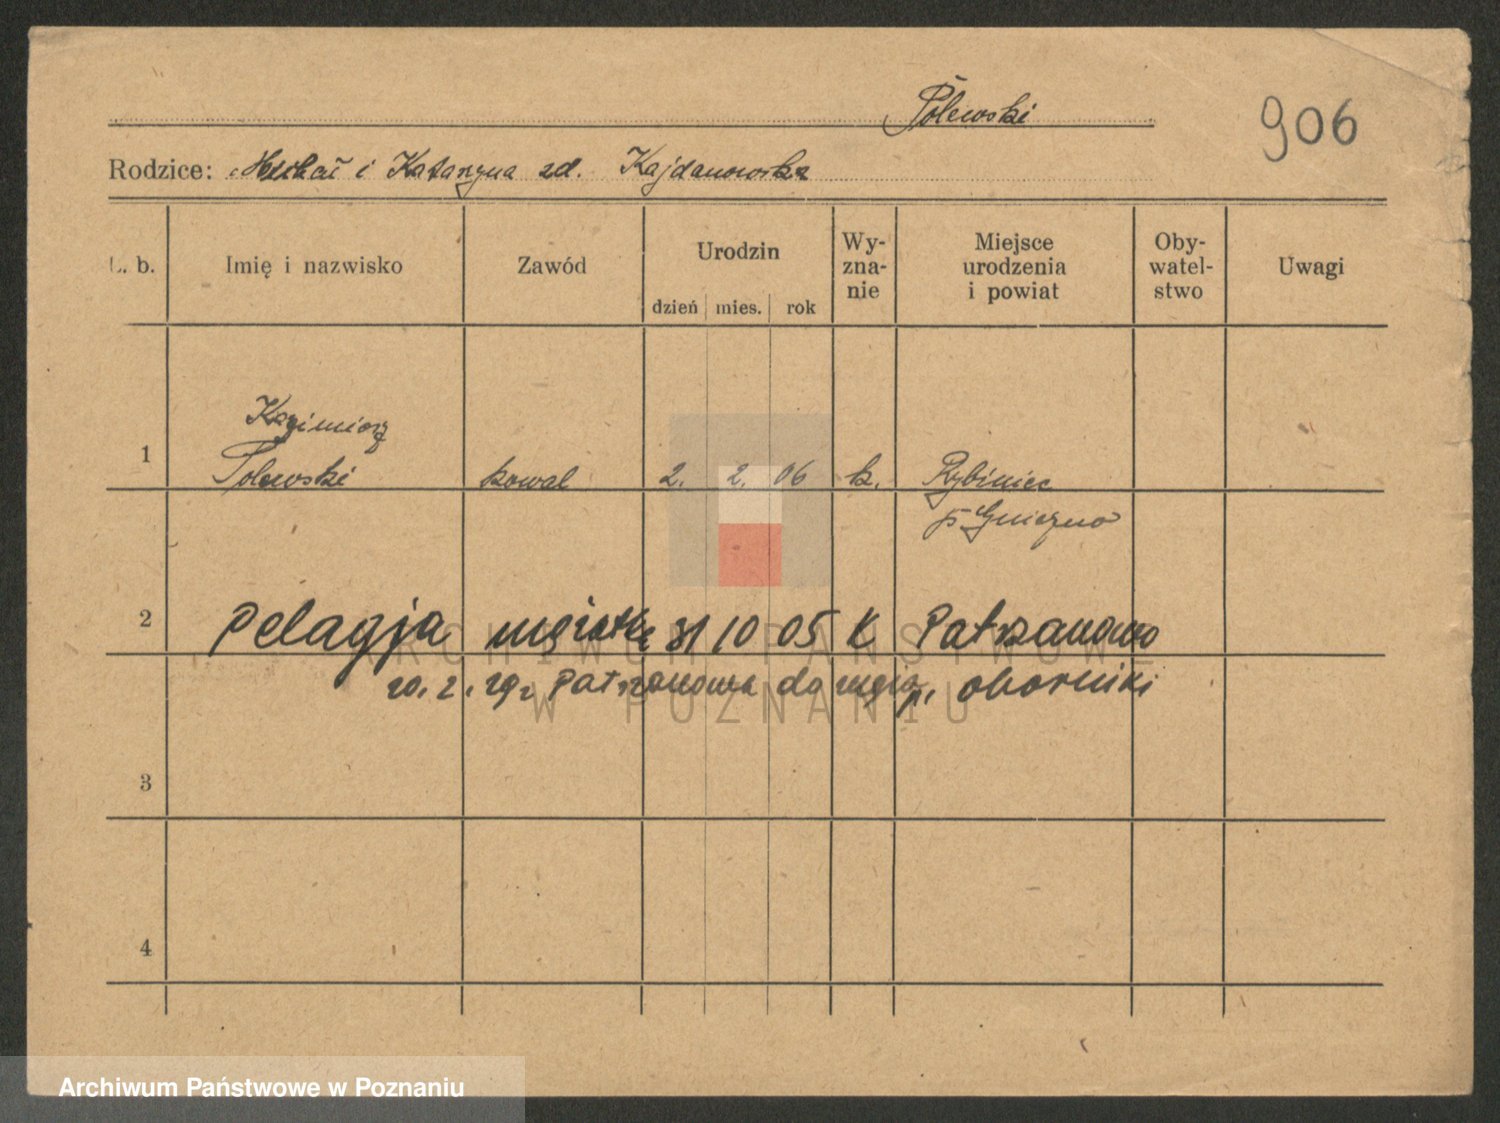 Polewski
906
Rodzice: Michał i Katarzyna zd. Kajdanowska
L. b. Imię i nazwisko Zawód Urodzin dzień mies. rok Wy-zna-nie Miejsce urodzenia i powiat Oby-watel-stwo Uwagi
Kazimierz
1 Polewski kowal 2. 2. 06 k. Rybiniec
p Gniezno
2 Pelagja mężatka 31 10 05 K Patrzanowo
20. 2. 29 Patrzanowa do p. oborniki
3
4
ARCHIWUM PAŃSTWOWE
W POZNANIU
Archiwum Państwowe w Poznaniu